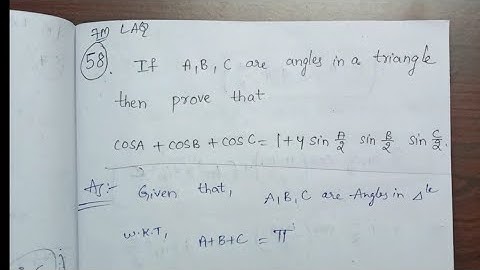 7M LAQ
58. If A, B, C are angles in a triangle
then prove that
cosA + cosB + cosC = 1+4 sin A/2 sin B/2 sin C/2.
As:- Given that, A, B, C are Angles in Δle
W.K.T, A+B+C = π